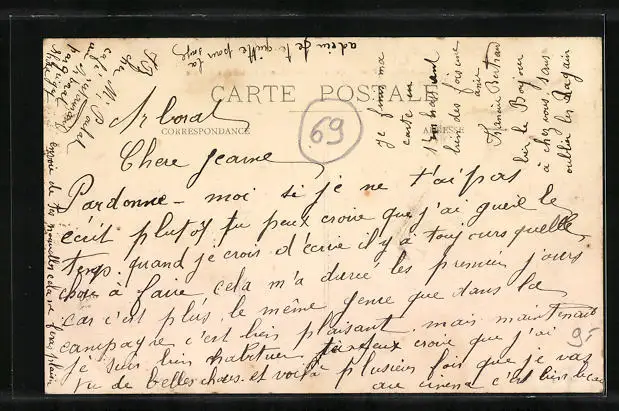 CARTE POSTALE
CORRESPONDANCE
ADRESSE
69
Chere Jeanne
Pardonne-moi si je ne t'ai pas
écrit plutôt tu peux croire que j'ai guère le
temps. quand je crois d'écrire il y a toujours quelle
chose à faire cela m'a durée les premier jours
car c'est plus le même genre que dans la
campagne c'est bien plaisant mais maintenant
je suis bien habituer croire que j'ai
vu de belles choses et voilà plusieurs fois que je vas
au cinema c'est bien beau
9-
je finis ma
carte en
bien des fois une
amie
Francine Bertrand
bien le Bonjour
à chez vous sans
oublier les
adieu je te quitte pour
envoie de tes nouvelles cela me feras plaisir